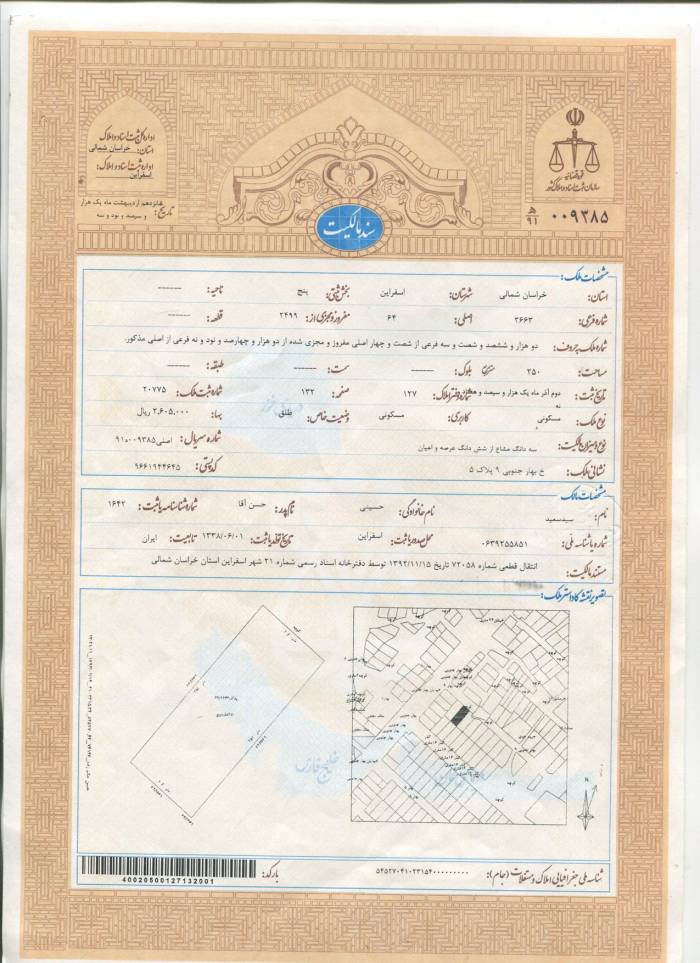 قوه قضائیه
سازمان ثبت اسناد و املاک کشور
ه‍ ۹۱ ۰۰۹۳۸۵
اداره کل ثبت اسناد و املاک
استان: خراسان شمالی
اداره ثبت اسناد و املاک:
اسفراین
تاریخ: شانزدهم اردیبهشت ماه یک هزار و سیصد و نود و سه
سند مالکیت
مشخصات ملک:
استان: خراسان شمالی شهرستان: اسفراین بخش ثبتی: پنج ناحیه: ------
شماره فرعی: ۲۶۶۳ اصلی: ۶۴ مفروز و مجزی از: ۲۴۹۹ قطعه: ------
شماره ملک بحروف: دو هزار و ششصد و شصت و سه فرعی از شصت و چهار اصلی مفروز و مجزی شده از دو هزار و چهارصد و نود و نه فرعی از اصلی مذکور.
مساحت: ۲۵۰ مترمربع بلوک: ------ سمت: ------ طبقه: ------
تاریخ ثبت: دوم آذر ماه یک هزار و سیصد و هفتاد و نه شماره دفتر املاک: ۱۲۷ صفحه: ۱۳۲ شماره ثبت ملک: ۲۰۷۷۵
نوع ملک: مسکونی کاربری: مسکونی وضعیت خاص: طلق بهاء: ۲,۶۰۵,۰۰۰ ریال
نوع و میزان مالکیت: سه دانگ مشاع از شش دانگ عرصه و اعیان شماره سریال: اصلی ۰۰۹۳۸۵-ه‍۹۱
نشانی ملک: خ بهار جنوبی ۹ پلاک ۵ کد پستی: ۹۶۶۱۹۴۴۶۴۵
مشخصات مالک:
نام: سیدسعید نام خانوادگی: حسینی نام پدر: حسن آقا شماره شناسنامه یا ثبت: ۱۶۴۲
شماره یا شناسه ملی: ۰۶۳۹۲۵۵۸۵۱ محل صدور یا ثبت: اسفراین تاریخ تولد یا ثبت: ۱۳۳۸/۰۶/۰۱ تابعیت: ایران
مستند مالکیت: انتقال قطعی شماره ۷۲۰۵۸ تاریخ ۱۳۹۲/۱۱/۱۵ توسط دفترخانه اسناد رسمی شماره ۳۱ شهر اسفراین استان خراسان شمالی
تصویر نقشه کاداستر ملک:
خلیج فارس
N
شناسه ملی جغرافیایی املاک و مستغلات (جام): ۵۴۵۲۷۰۴۱۰۲۳۱۵۴۰۰۰۰۰۰۰۰۰
بارکد:
40020500127132001